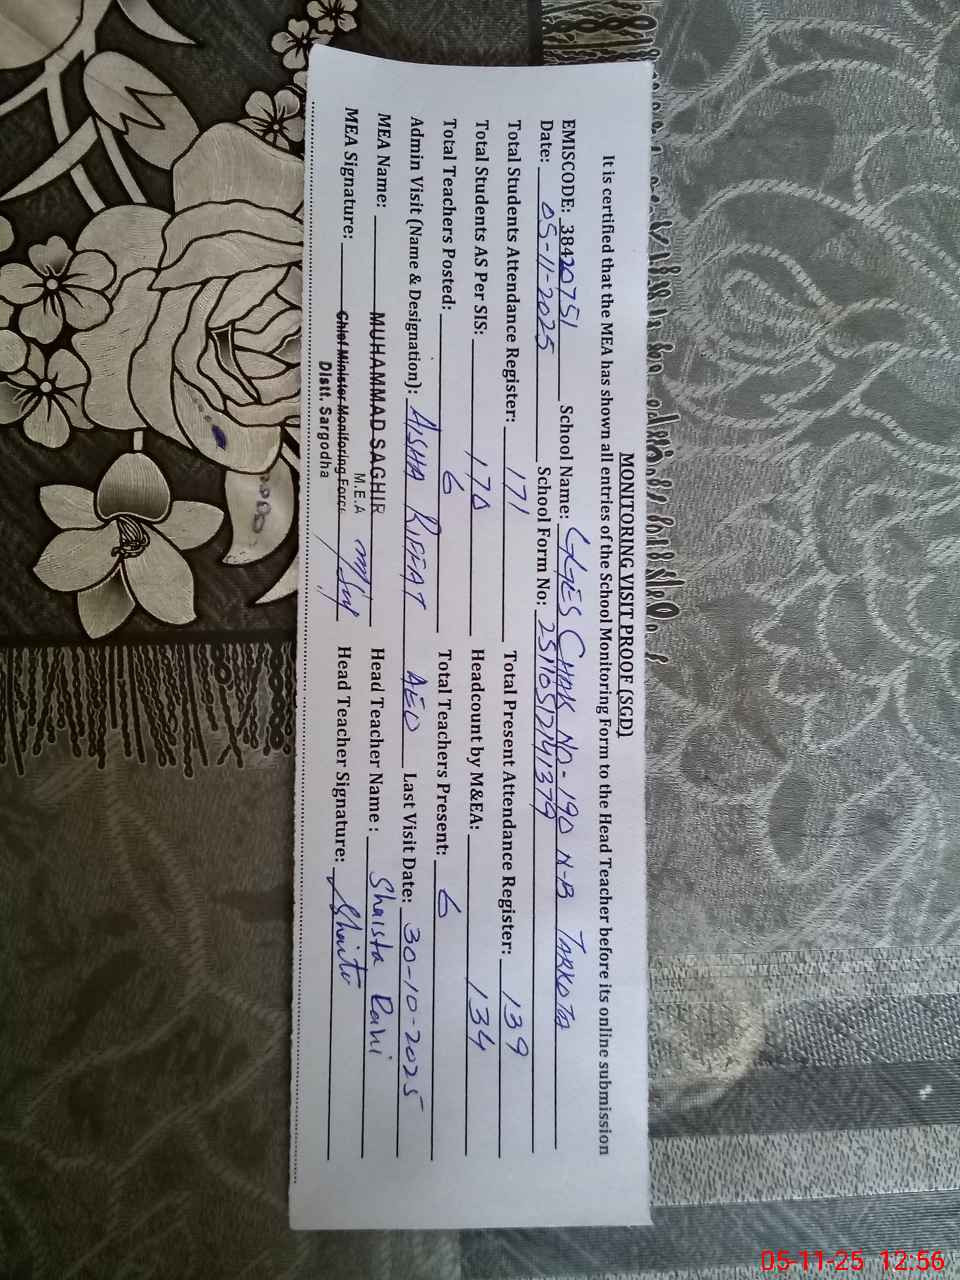 MONITORING VISIT PROOF (SGD)
It is certified that the MEA has shown all entries of the School Monitoring Form to the Head Teacher before its online submission
EMISCODE: 38420751 School Name: GGES CHAK NO-190 N-B TARKOTA
Date: 05-11-2025 School Form No:
Total Students Attendance Register: 171 Total Present Attendance Register: 139
Total Students AS Per SIS: 170 Headcount by M&EA: 134
Total Teachers Posted: 6 Total Teachers Present: 6
Admin Visit (Name & Designation): AISHA RIFFAT AEO Last Visit Date: 30-10-2025
MEA Name: MUHAMMAD SAGHIR Head Teacher Name : Shaista
M.E.A
MEA Signature: Chief Minister Monitoring Force Head Teacher Signature:
Distt. Sargodha
05-11-25 12:56